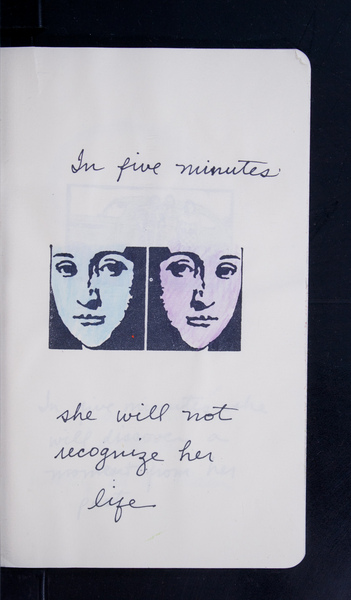 In five minutes
she will not
recognize her
life